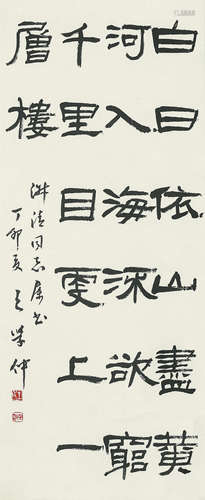 白日依山盡黄
河入海流欲窮
千里目更上一
層樓
清同志属书
丁卯夏王学仲